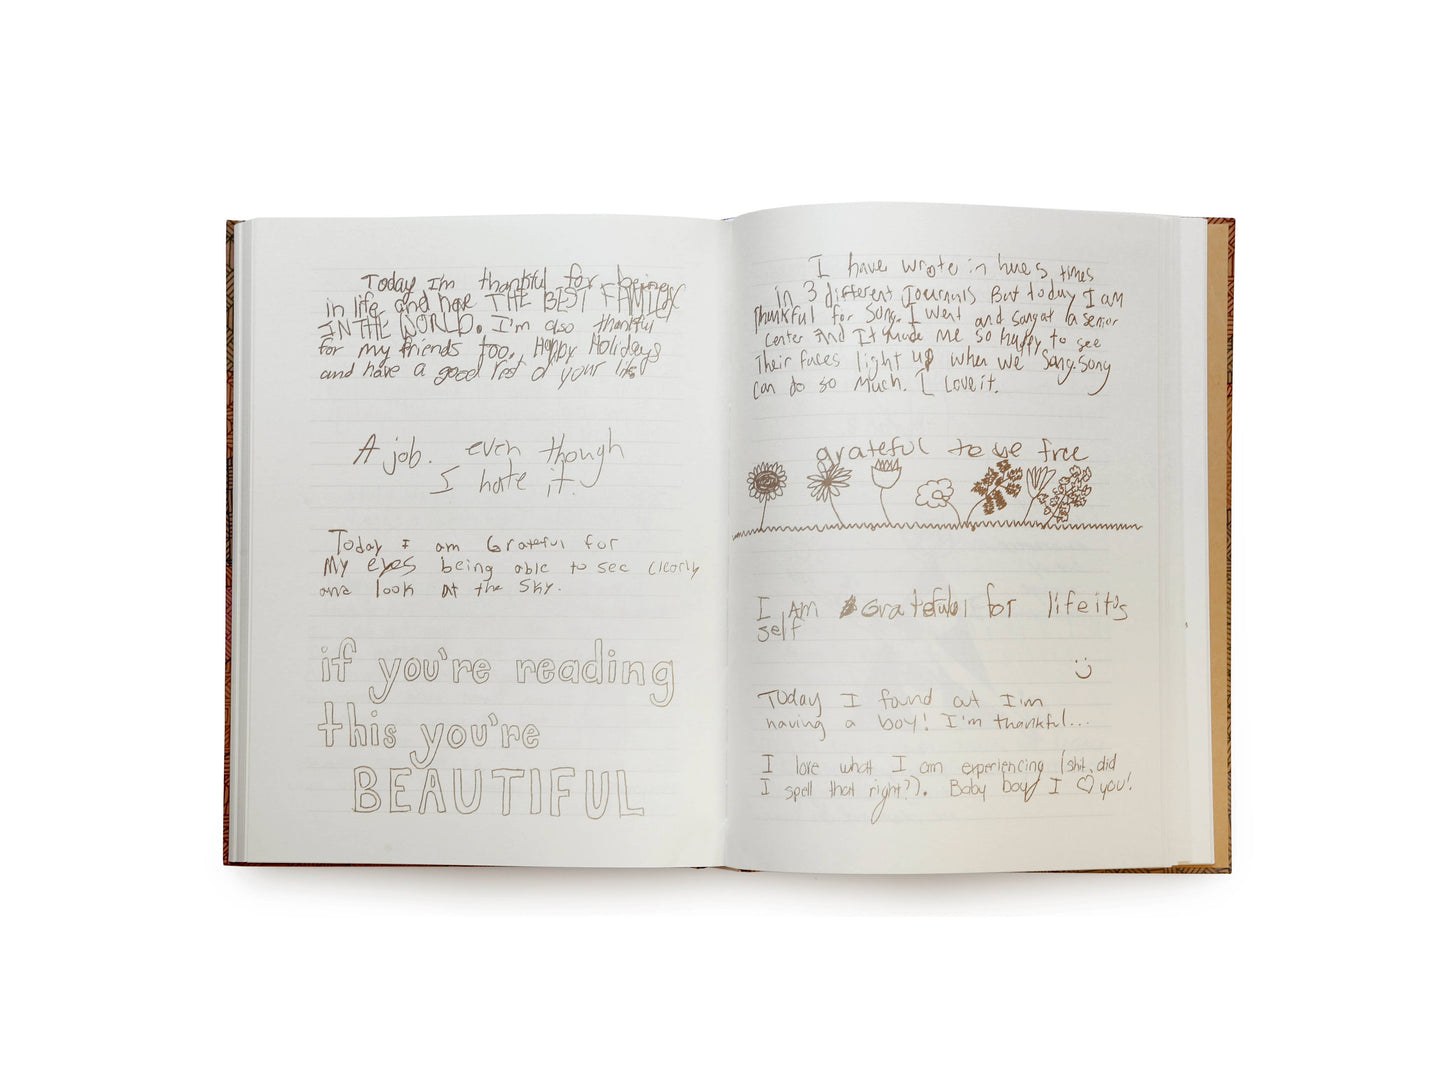 Today I'm thankful for being
in life and have THE BEST FAMILY
IN THE WORLD. I'm also thankful
for my friends too. Happy Holidays
and have a good rest of your life
A job. even though
I hate it.
Today I am Grateful for
My eyes being able to see clearly
and look at the sky.
if you're reading
this you're
BEAUTIFUL
I have wrote in here 5 times
in 3 different Journals But today I am
thankful for song. I went and sang at a senior
center And It made me so happy to see
Their faces light up when we sang. Song
can do so much. I love it.
grateful to be free
I AM Grateful for life it's
self
Today I found out I'm
having a boy! I'm thankful...
I love what I am experiencing (shit, did
I spell that right?). Baby boy I you!